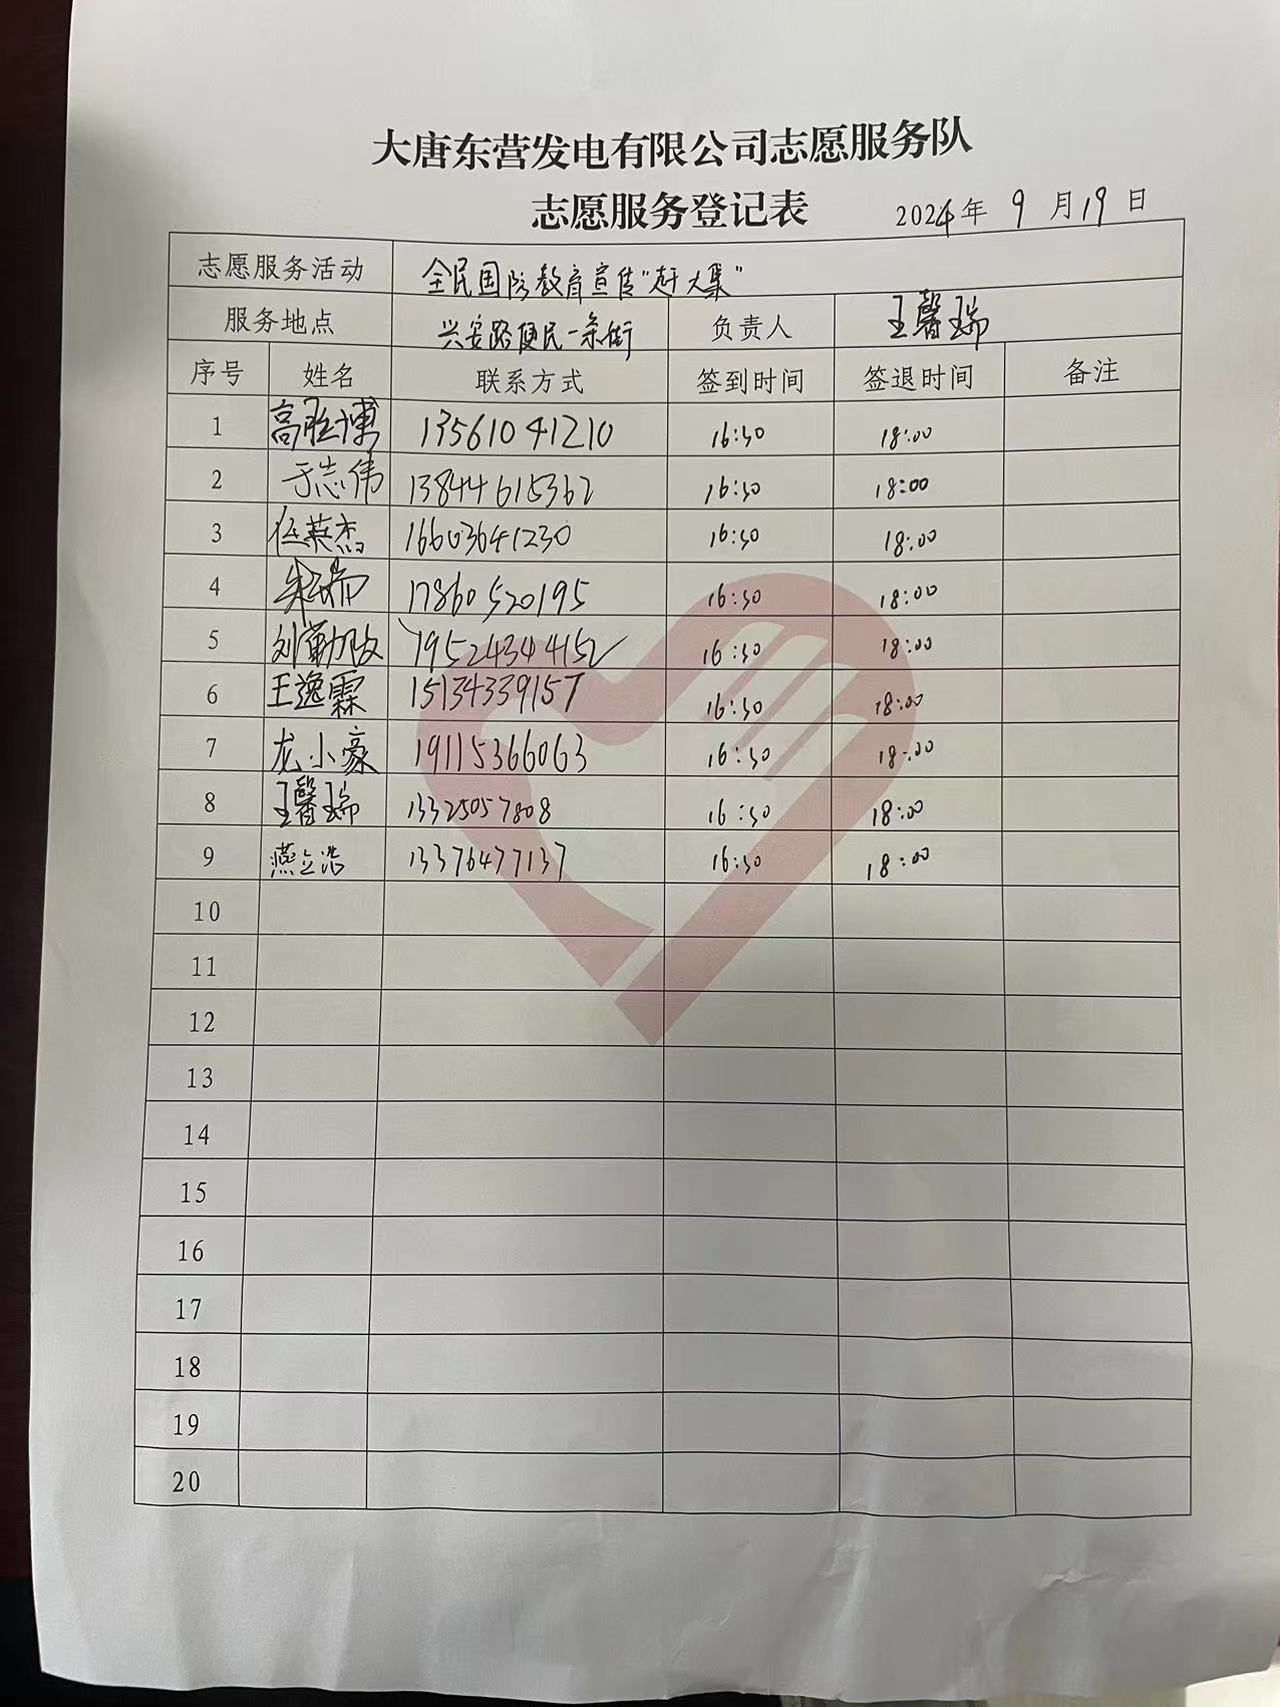 大唐东营发电有限公司志愿服务队
志愿服务登记表 2024年 9 月 19 日
志愿服务活动 全民国防教育宣传"赶大集"
服务地点 兴安路便民一条街 负责人 王馨瑞
序号 姓名 联系方式 签到时间 签退时间 备注
1 高胜博 13561041210 16:30 18:00
2 于志伟 13844615362 16:30 18:00
3 任英杰 16603641230 16:30 18:00
4 17860520195 16:30 18:00
5 刘勤政 19524344152 16:30 18:00
6 王逸霖 15134339157 16:30 18:00
7 龙小豪 19115366063 16:30 18:00
8 王馨瑞 13325057808 16:30 18:00
9 燕立浩 13376477137 16:30 18:00
10
11
12
13
14
15
16
17
18
19
20